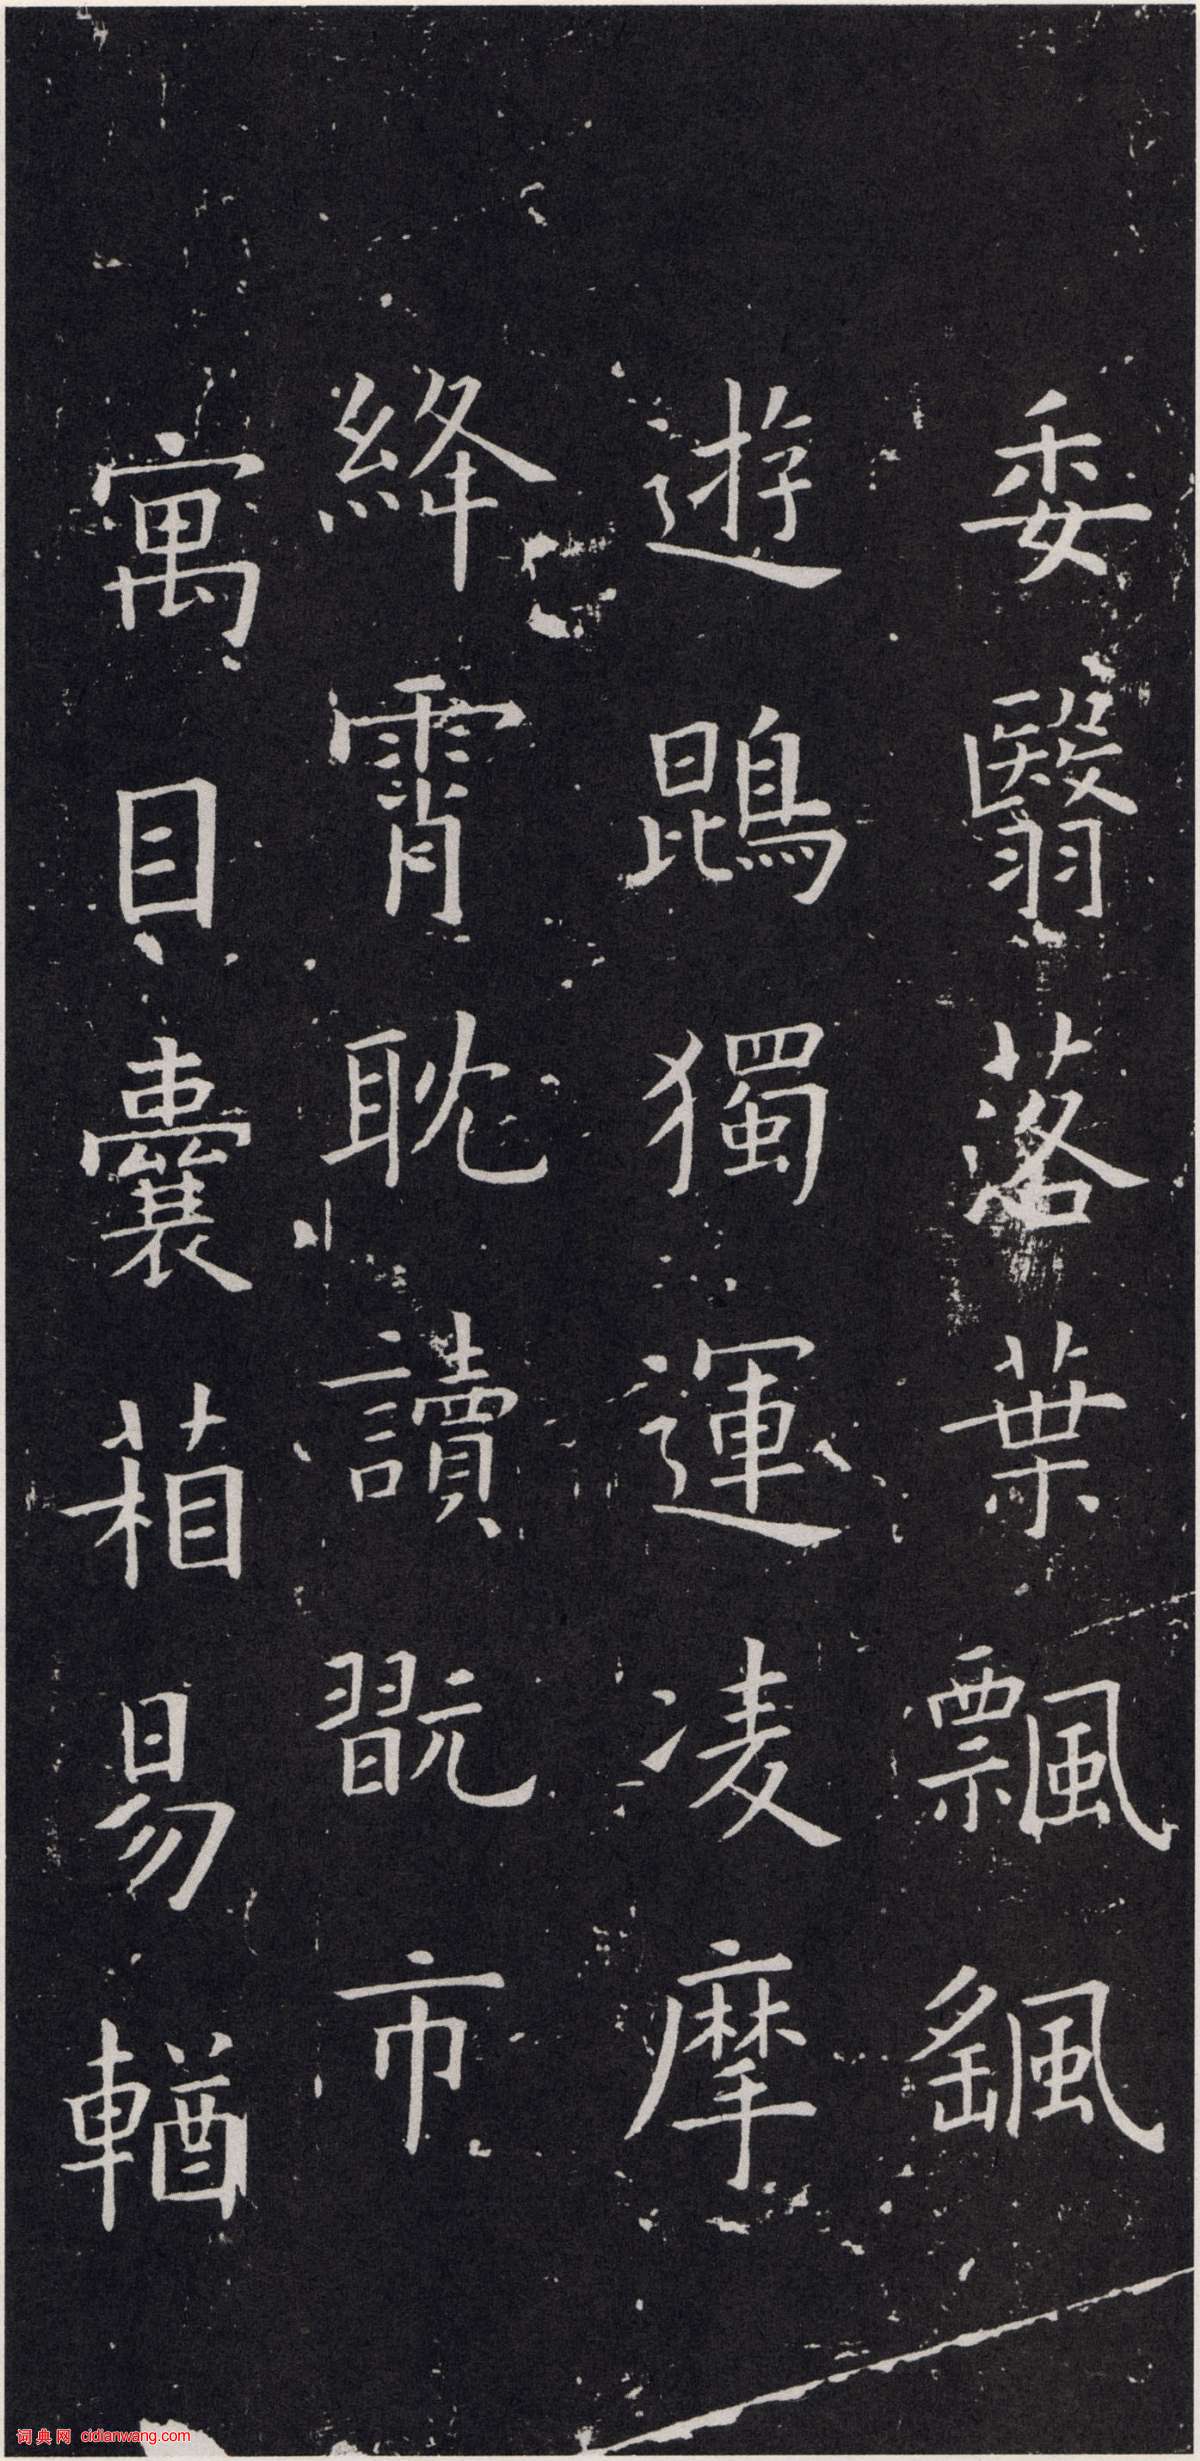 委翳落葉飄颻
遊鵾獨運凌摩
絳霄耽讀翫市
寓目囊葙易輶
词典网 cidianwang.com